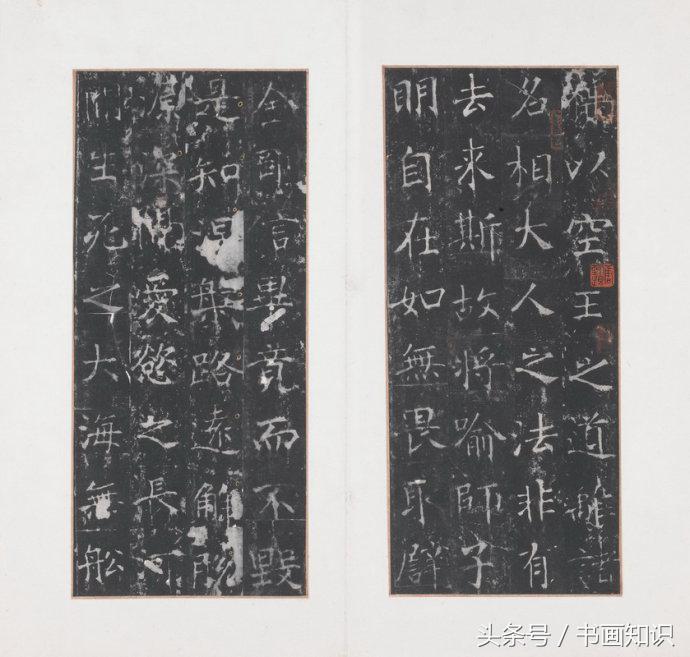 以空王之道離諸
名相大人之法非有
去來斯故將喻師子
明自在如無畏取譬
金剛信畢竟而不毀
是知涅槃路遠解脫
源深隔愛慾之長河
間生死之大海無舩
头条号 / 书画知识